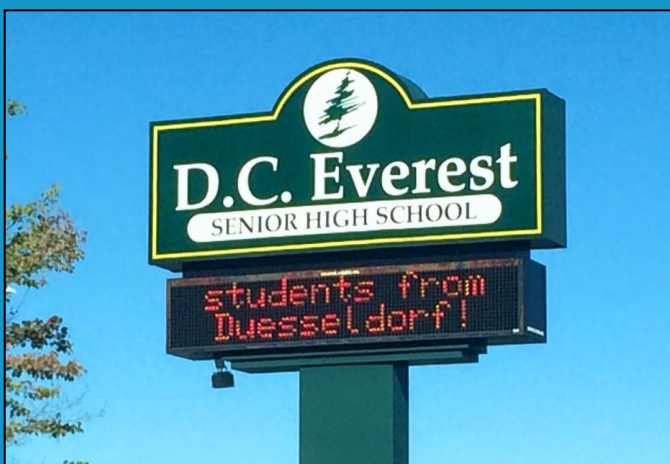 D.C. Everest
SENIOR HIGH SCHOOL
students from
Duesseldorf!